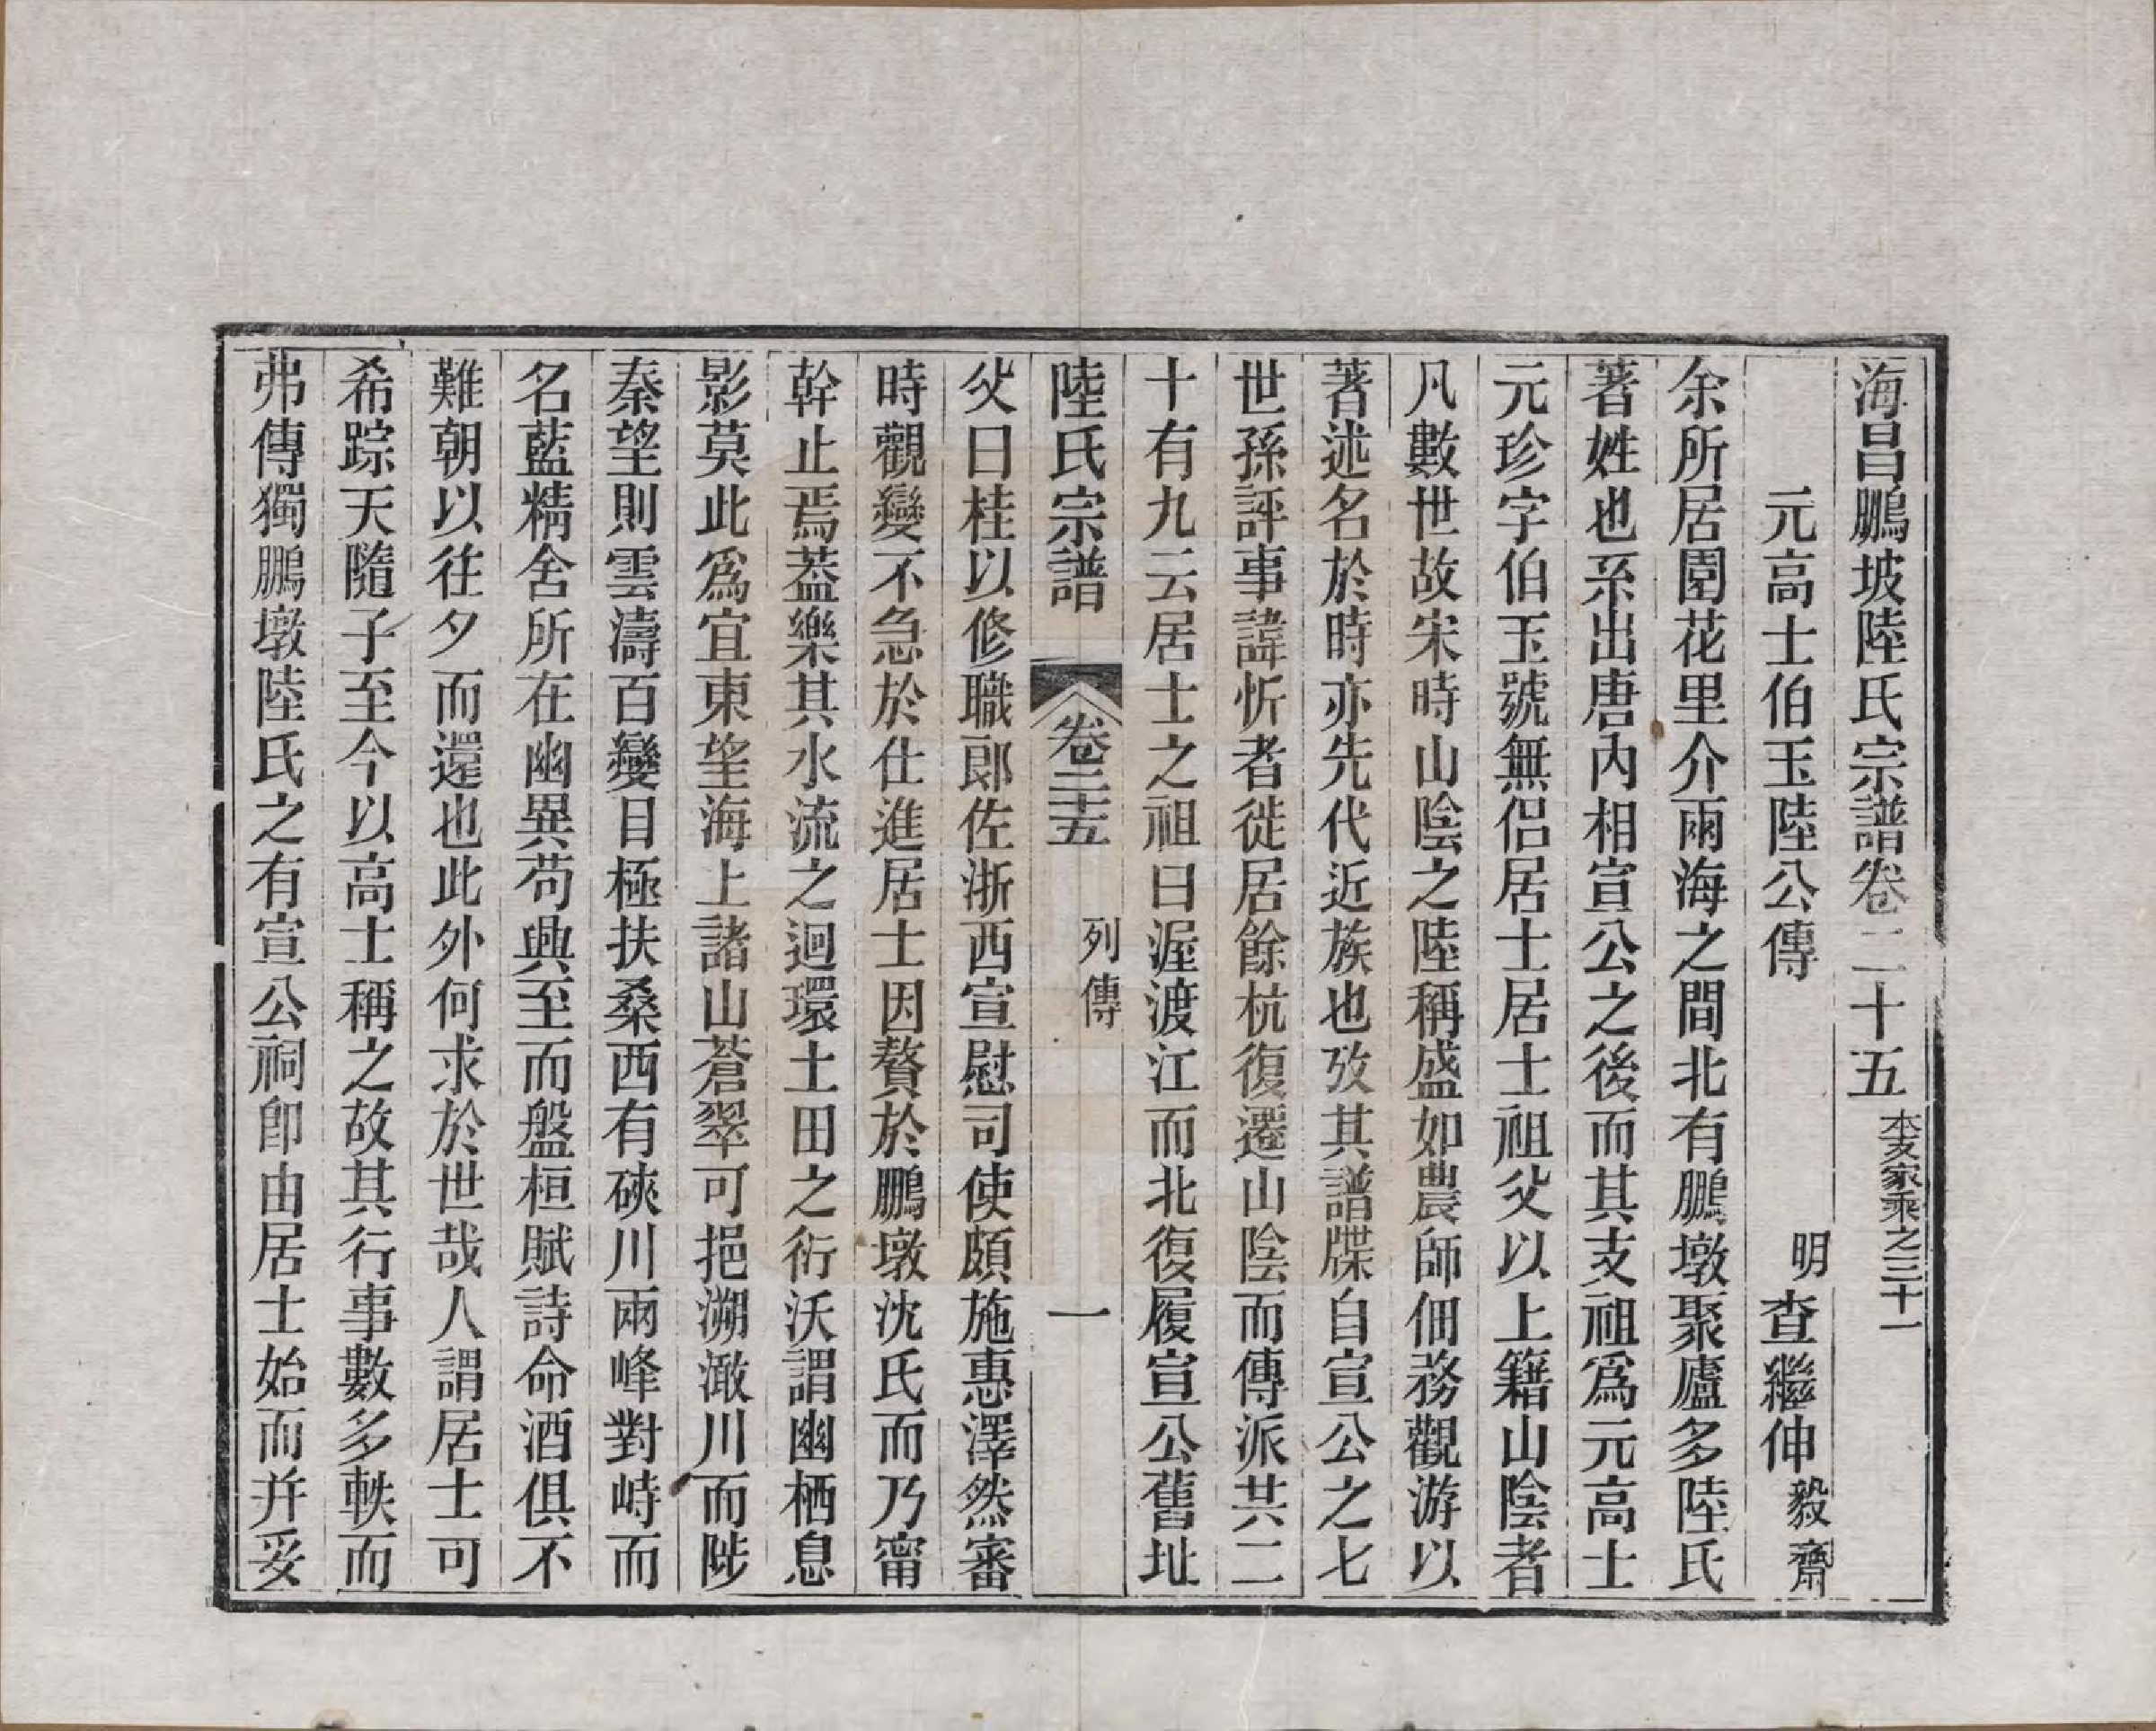 海昌鵬坡陸氏宗譜卷二十五 本支家乘之三十一
元高士伯玉陸公傳 明 查繼伸 毅齋
余所居園花里介兩海之間北有鵬墩聚廬多陸氏
著姓也系出唐內相宣公之後而其支祖爲元高士
元珍字伯玉號無侶居士居士祖父以上籍山陰者
凡數世故宋時山陰之陸稱盛如農師佃務觀游以
著述名於時亦先代近族也攷其譜牒自宣公之七
世孫評事諱忻者徙居餘杭復遷山陰而傳派共二
十有九云居士之祖曰渥渡江而北復履宣公舊址
陸氏宗譜 卷二十五 列傳 一
父曰桂以修職郎佐浙西宣慰司使頗施惠澤然審
時觀變不急於仕進居士因贅於鵬墩沈氏而乃甯
幹止焉葢樂其水流之迴環土田之衍沃謂幽栖息
影莫此爲宜東望海上諸山蒼翠可挹溯澉川而陟
秦望則雲濤百變目極扶桑西有硤川兩峰對峙而
名藍精舍所在幽異茍興至而盤桓賦詩命酒俱不
難朝以往夕而還也此外何求於世哉人謂居士可
希踪天隨子至今以高士稱之故其行事數多軼而
弗傳獨鵬墩陸氏之有宣公祠卽由居士始而并妥